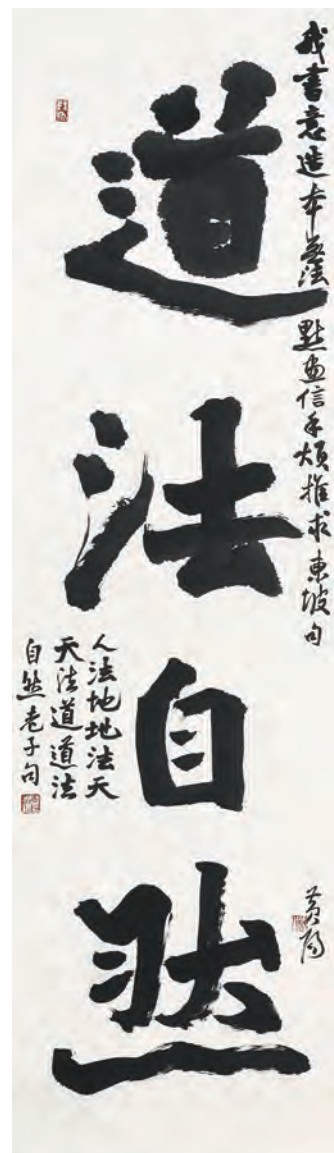 我書意造本無法 點畫信手煩推求 東坡句
道法自然
人法地地法天
天法道道法
自然 老子句